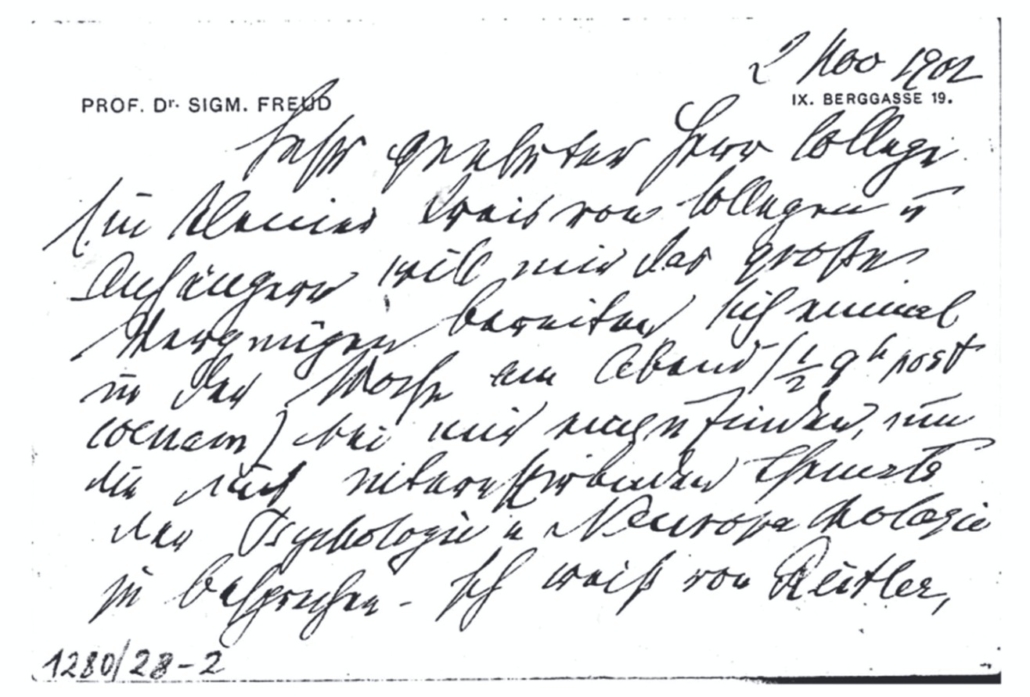 2 Nov 1902
PROF. Dr. SIGM. FREUD
IX. BERGGASSE 19.
Sehr geehrter Herr College
Ein kleiner Kreis von Collegen u
Anhängern will mir das große
Vergnügen bereiten sich einmal
in der Woche am Abend (½ 9 h post
coenam) bei mir einzufinden, um
die uns interessirenden Themata
der Psychologie u Neuropathologie
zu besprechen - Ich weiß von Reitler,
1280/28-2